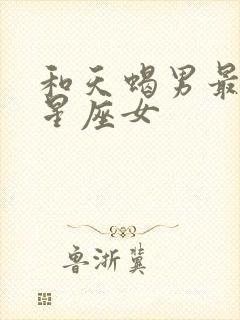 和天蝎男最
星座女
鲁浙冀